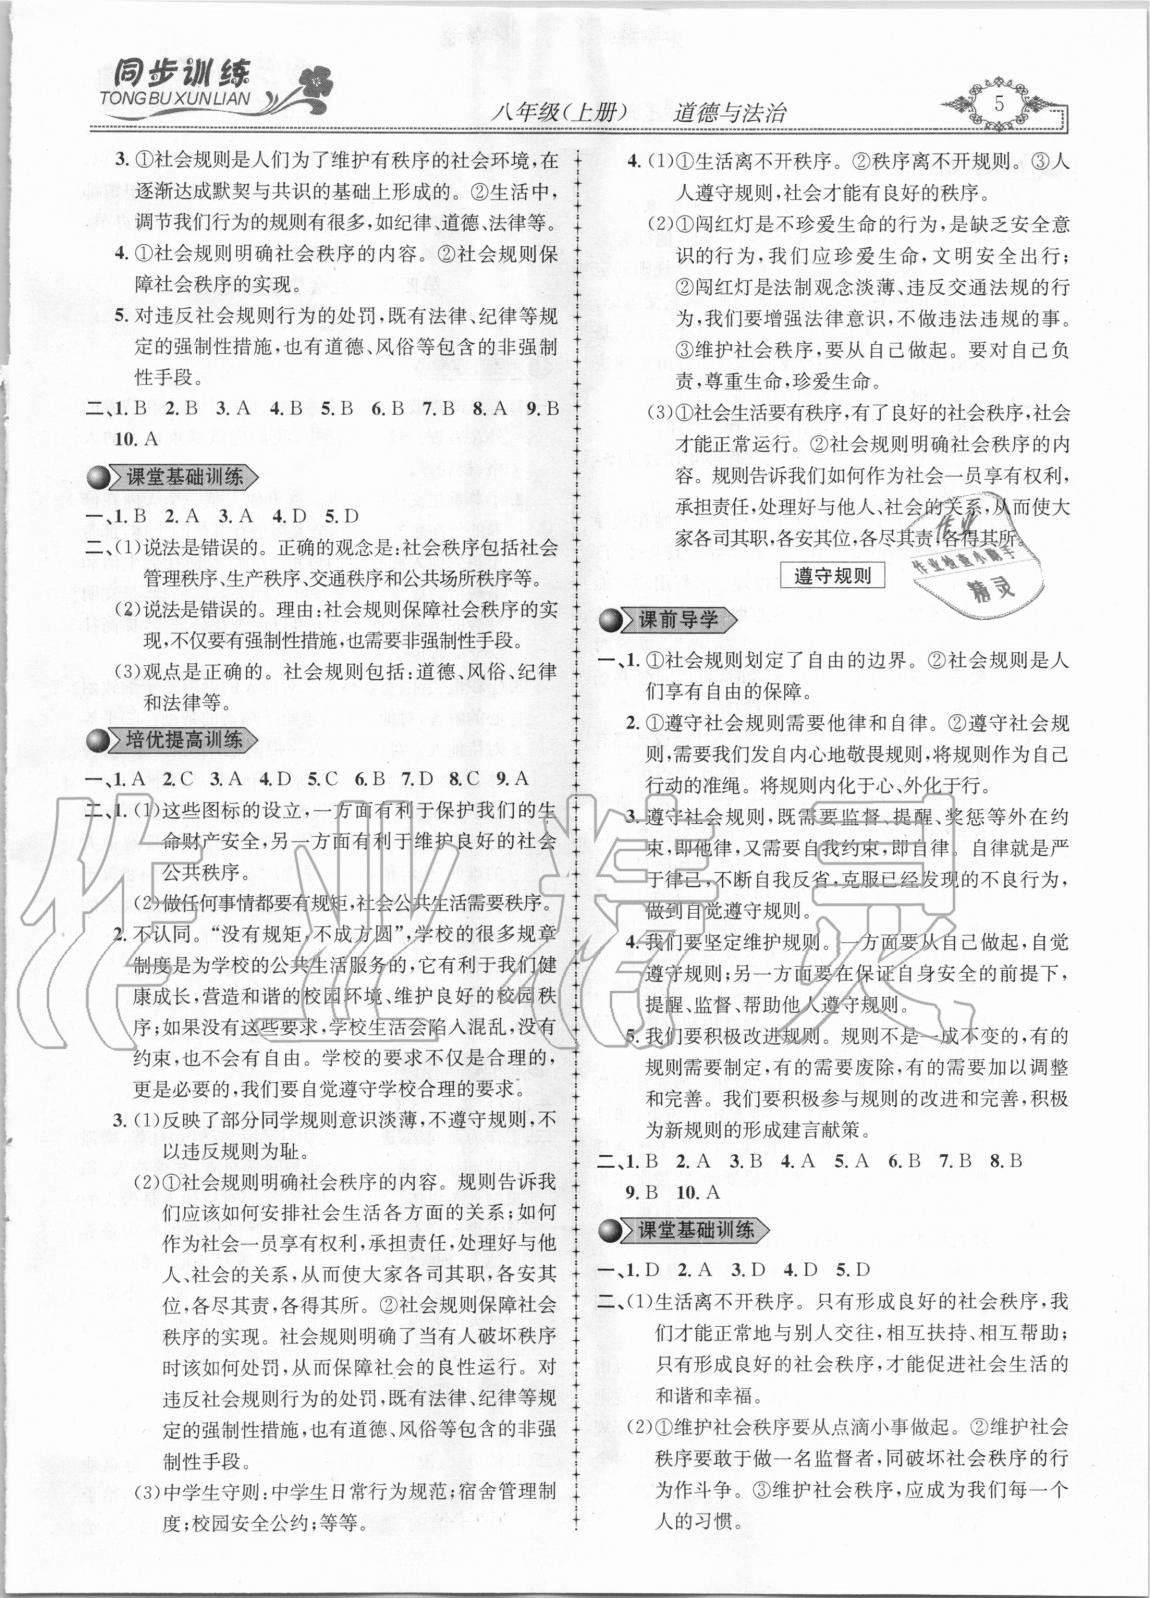 同步训练
TONG BU XUN LIAN
八年级(上册) 道德与法治
5
3. ①社会规则是人们为了维护有秩序的社会环境,在
逐渐达成默契与共识的基础上形成的。②生活中,
调节我们行为的规则有很多,如纪律、道德、法律等。
4. ①社会规则明确社会秩序的内容。②社会规则保
障社会秩序的实现。
5. 对违反社会规则行为的处罚,既有法律、纪律等规
定的强制性措施,也有道德、风俗等包含的非强制
性手段。
二、1. B 2. B 3. A 4. B 5. B 6. B 7. B 8. A 9. B
10. A
课堂基础训练
一、1. B 2. A 3. A 4. D 5. D
二、(1)说法是错误的。正确的观念是:社会秩序包括社会
管理秩序、生产秩序、交通秩序和公共场所秩序等。
(2)说法是错误的。理由:社会规则保障社会秩序的实
现,不仅要有强制性措施,也需要非强制性手段。
(3)观点是正确的。社会规则包括:道德、风俗、纪律
和法律等。
培优提高训练
一、1. A 2. C 3. A 4. D 5. C 6. D 7. D 8. C 9. A
二、1. (1)这些图标的设立,一方面有利于保护我们的生
命财产安全,另一方面有利于维护良好的社会
公共秩序。
(2)做任何事情都要有规矩,社会公共生活需要秩序。
2. 不认同。“没有规矩,不成方圆”,学校的很多规章
制度是为学校的公共生活服务的,它有利于我们健
康成长,营造和谐的校园环境、维护良好的校园秩
序;如果没有这些要求,学校生活会陷入混乱,没有
约束,也不会有自由。学校的要求不仅是合理的,
更是必要的,我们要自觉遵守学校合理的要求。
3. (1)反映了部分同学规则意识淡薄,不遵守规则,不
以违反规则为耻。
(2)①社会规则明确社会秩序的内容。规则告诉我
们应该如何安排社会生活各方面的关系;如何
作为社会一员享有权利,承担责任,处理好与他
人、社会的关系,从而使大家各司其职,各安其
位,各尽其责,各得其所。②社会规则保障社会
秩序的实现。社会规则明确了当有人破坏秩序
时该如何处罚,从而保障社会的良性运行。对
违反社会规则行为的处罚,既有法律、纪律等规
定的强制性措施,也有道德、风俗等包含的非强
制性手段。
(3)中学生守则;中学生日常行为规范;宿舍管理制
度;校园安全公约;等等。
4. (1)①生活离不开秩序。②秩序离不开规则。③人
人遵守规则,社会才能有良好的秩序。
(2)①闯红灯是不珍爱生命的行为,是缺乏安全意
识的行为,我们应珍爱生命,文明安全出行;
②闯红灯是法制观念淡薄、违反交通法规的行
为,我们要增强法律意识,不做违法违规的事。
③维护社会秩序,要从自己做起。要对自己负
责,尊重生命,珍爱生命。
(3)①社会生活要有秩序,有了良好的社会秩序,社会
才能正常运行。②社会规则明确社会秩序的内
容。规则告诉我们如何作为社会一员享有权利,
承担责任,处理好与他人、社会的关系,从而使大
家各司其职,各安其位,各尽其责,各得其所。
遵守规则
课前导学
一、1. ①社会规则划定了自由的边界。②社会规则是人
们享有自由的保障。
2. ①遵守社会规则需要他律和自律。②遵守社会规
则,需要我们发自内心地敬畏规则,将规则作为自己
行动的准绳。将规则内化于心、外化于行。
3. 遵守社会规则,既需要监督、提醒、奖惩等外在约
束,即他律,又需要自我约束,即自律。自律就是严
于律己,不断自我反省,克服已经发现的不良行为,
做到自觉遵守规则。
4. 我们要坚定维护规则。一方面要从自己做起,自觉
遵守规则;另一方面要在保证自身安全的前提下,
提醒、监督、帮助他人遵守规则。
5. 我们要积极改进规则。规则不是一成不变的,有的
规则需要制定,有的需要废除,有的需要加以调整
和完善。我们要积极参与规则的改进和完善,积极
为新规则的形成建言献策。
二、1. B 2. A 3. B 4. A 5. A 6. B 7. B 8. B
9. B 10. A
课堂基础训练
一、1. D 2. A 3. D 4. D 5. D
二、(1)生活离不开秩序。只有形成良好的社会秩序,我
们才能正常地与别人交往,相互扶持、相互帮助;
只有形成良好的社会秩序,才能促进社会生活的
和谐和幸福。
(2)①维护社会秩序要从点滴小事做起。②维护社会
秩序要敢于做一名监督者,同破坏社会秩序的行
为作斗争。③维护社会秩序,应成为我们每一个
人的习惯。
作业
作业检查小助手
精灵
作业精灵